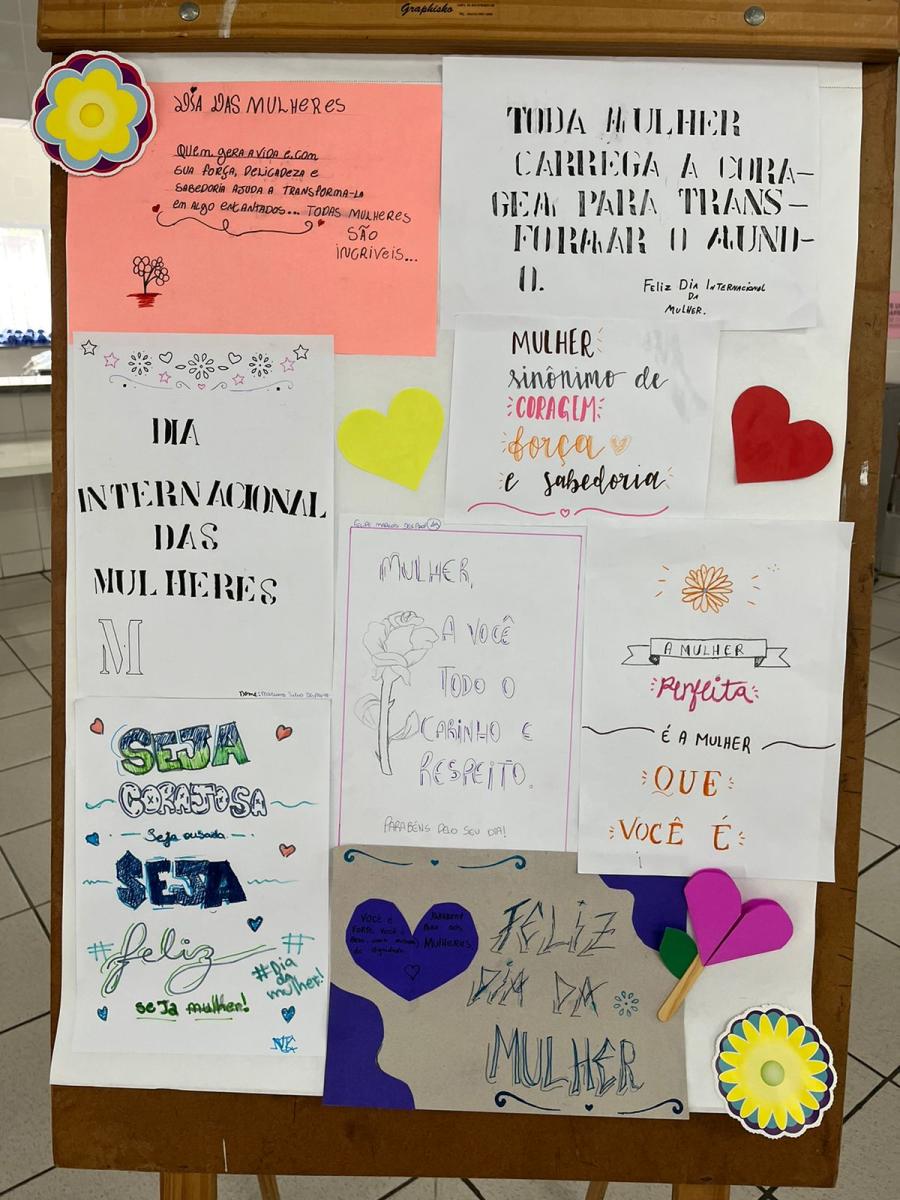 Graphisko
DIA DAS MULHERES
QUEM GERA A VIDA E COM
SUA FORÇA, DELICADEZA E
SABEDORIA AJUDA A TRANSFORMA-LA
EM ALGO ENCANTADOS... TODAS MULHERES
SÃO
INCRIVEIS...
TODA MULHER
CARREGA A CORA-
GEM PARA TRANS-
FORMAR O MUND-
O.
FELIZ DIA INTERNACIONAL
DA
MULHER.
DIA
INTERNACIONAL
DAS
MULHERES
M
MULHER
sinônimo de
CORAGEM
força
e sabedoria
MULHER,
A VOCÊ
TODO O
CARINHO E
RESPEITO.
PARABÉNS PELO SEU DIA!
A MULHER
Perfeita
É A MULHER
QUE
VOCÊ É
SEJA
CORAJOSA
Seja ousada
SEJA
#feliz#
seja mulher!
#Dia
da
mulher!
VOCÊ E
FORTE
MULHERES
FELIZ
DIA DA
MULHER